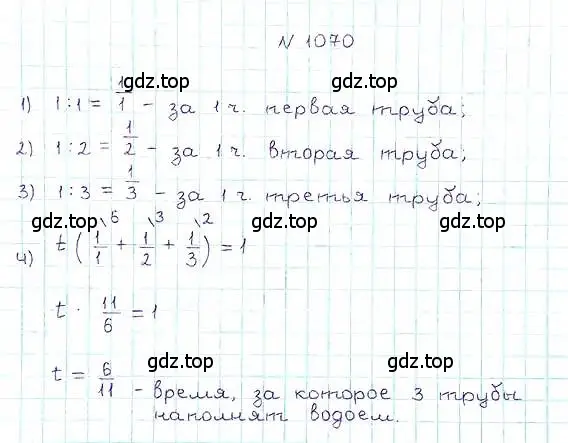 N 1070
gdz.top
1) 1:1 = 1/1 - за 1ч. первая труба;
2) 1:2 = 1/2 - за 1ч. вторая труба;
3) 1:3 = 1/3 - за 1ч. третья труба;
gdz.top gdz.top
4) t (1/1 \6 + 1/2 \3 + 1/3 \2) = 1
t · 11/6 = 1
gdz.top gdz.top
t = 6/11 - время, за которое 3 трубы
наполнят водоем.